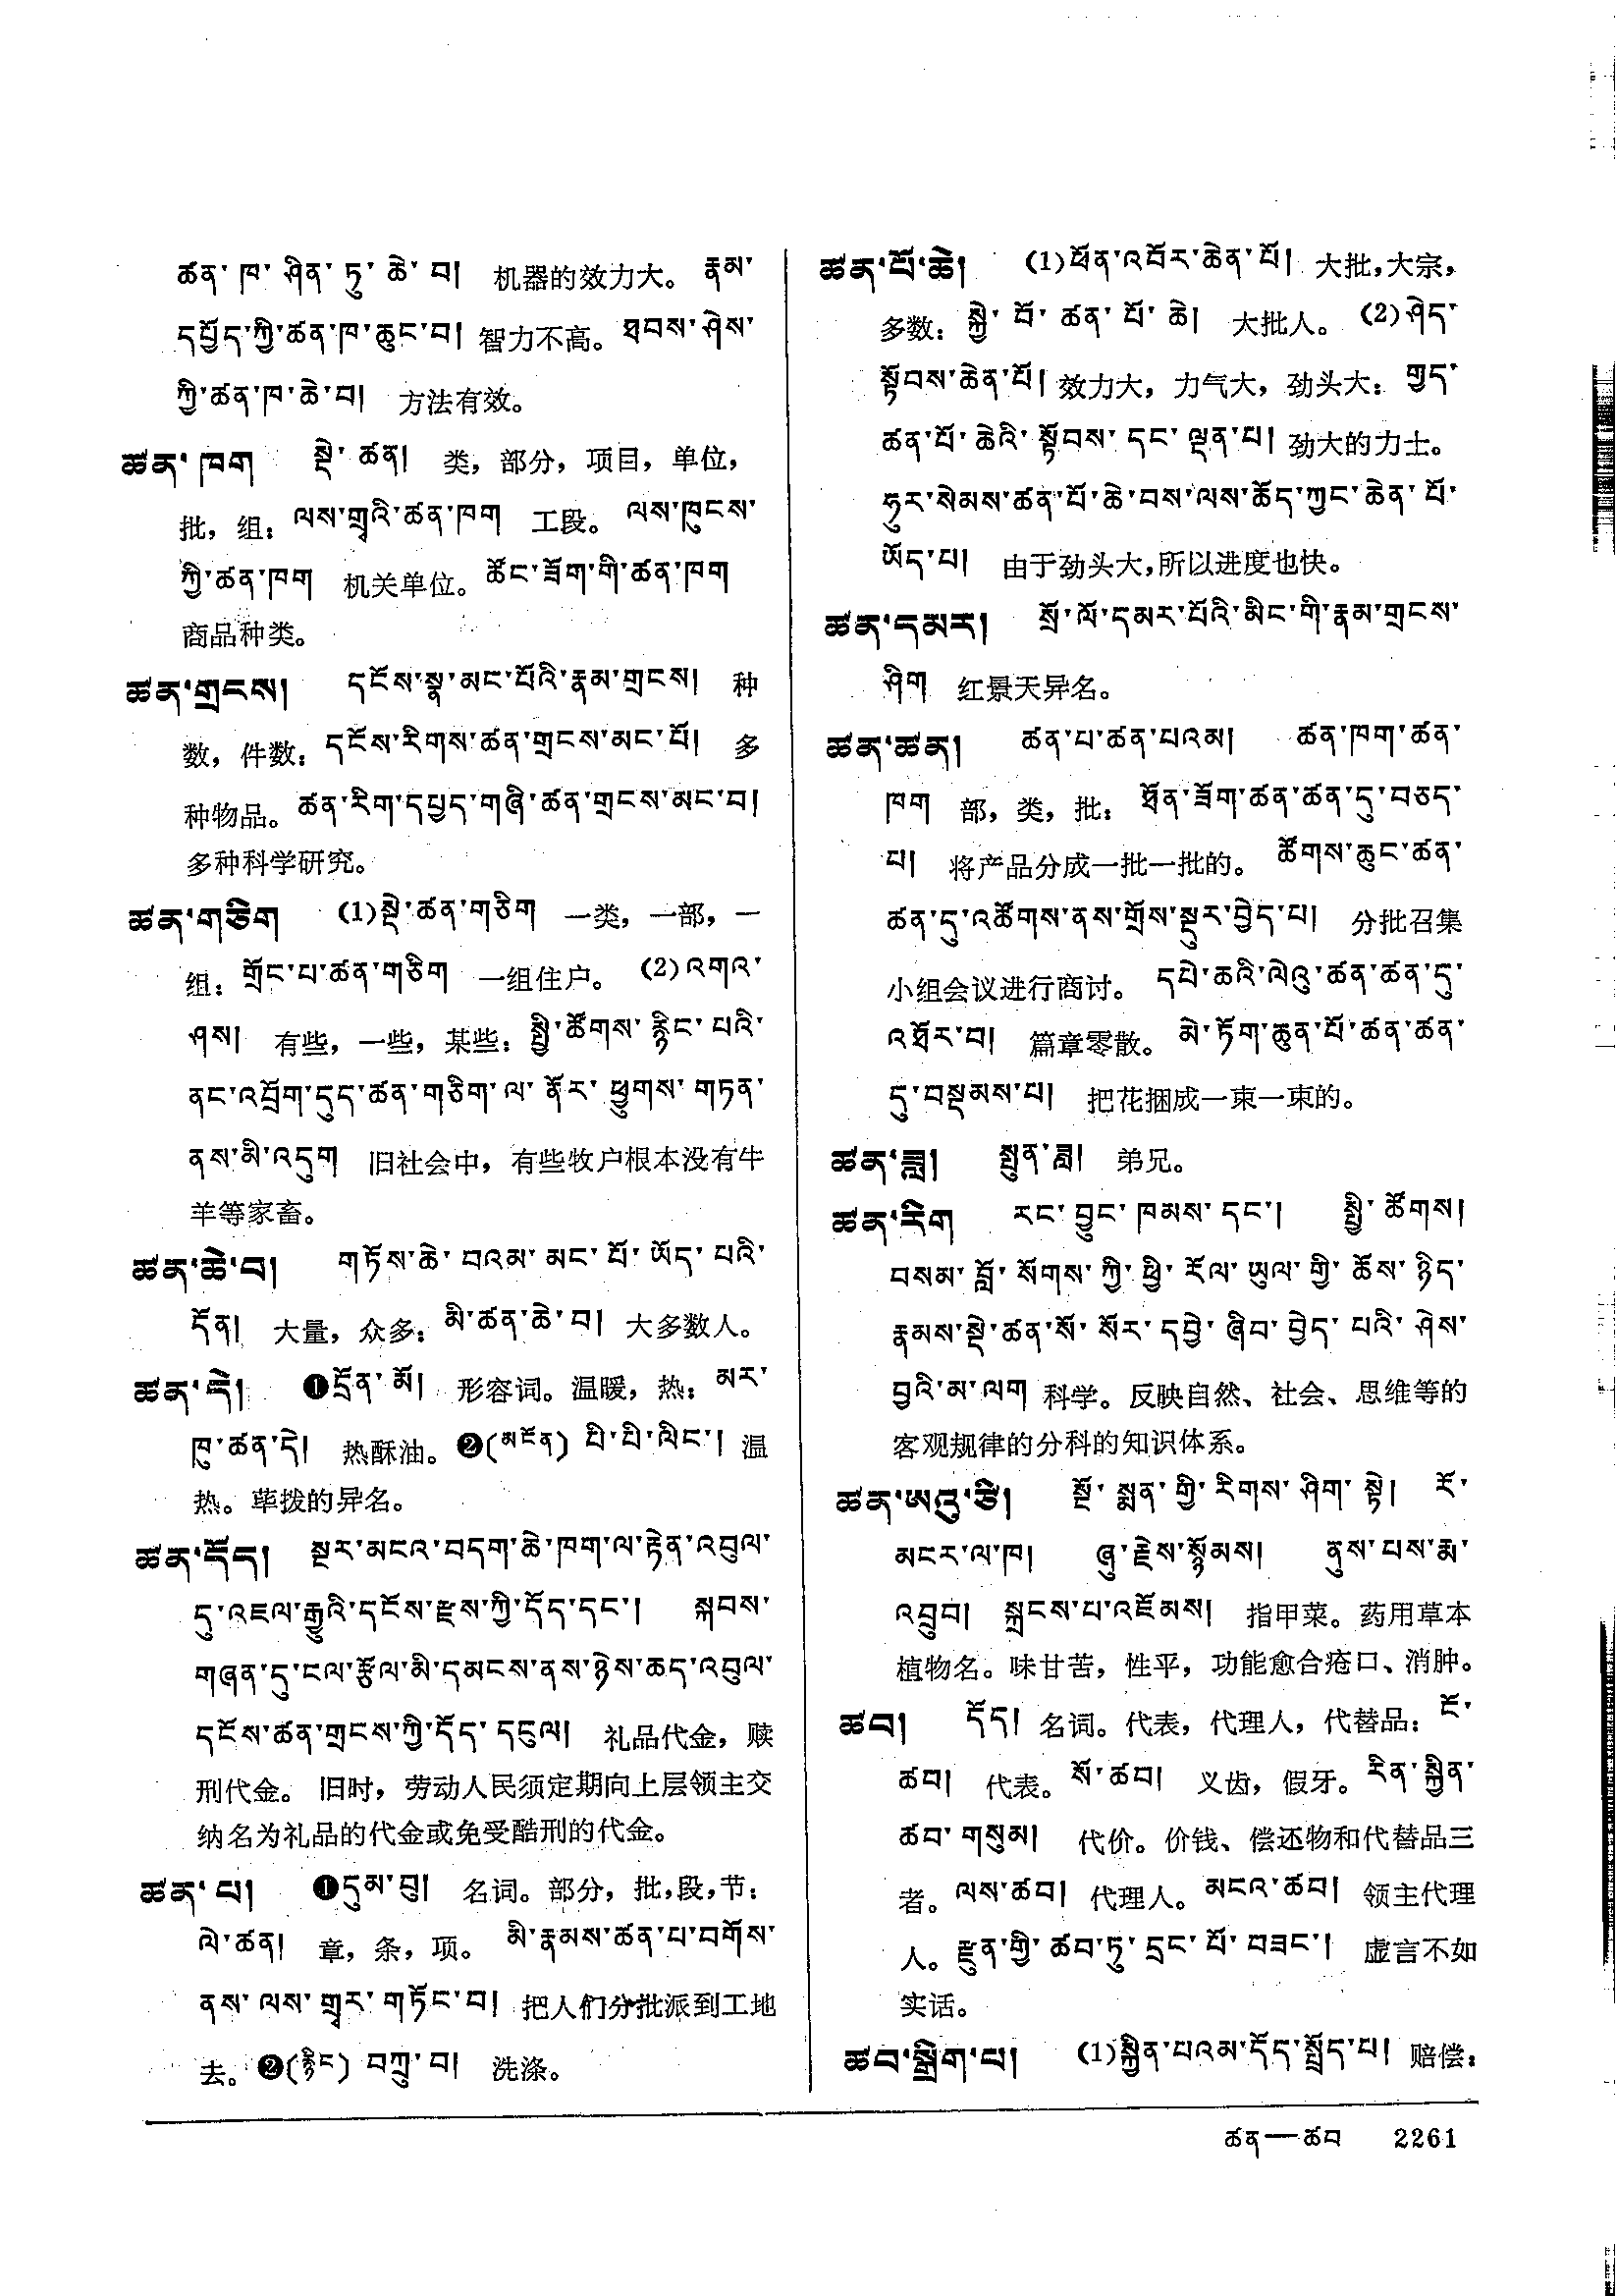 ཚན་ཁ་ཤིན་ཏུ་ཆེ་བ། 机器的效力大。 རྣམ་
དཔྱོད་ཀྱི་ཚན་ཁ་ཆུང་བ། 智力不高。 ཐབས་ཤེས་
ཀྱི་ཚན་ཁ་ཆེ་བ། 方法有效。
ཚན་ཁག སྡེ་ཚན། 类，部分，项目，单位，
批，组： ལས་གྲྭའི་ཚན་ཁག 工段。 ལས་ཁུངས་
ཀྱི་ཚན་ཁག 机关单位。 ཚོང་ཟོག་གི་ཚན་ཁག
商品种类。
ཚན་གྲངས། དངོས་སྣ་མང་པོའི་རྣམ་གྲངས། 种
数，件数： དངོས་རིགས་ཚན་གྲངས་མང་པོ། 多
种物品。 ཚན་རིག་དཔྱད་གཞི་ཚན་གྲངས་མང་བ།
多种科学研究。
ཚན་གཅིག (1)སྡེ་ཚན་གཅིག 一类，一部，一
组： གྲོང་པ་ཚན་གཅིག 一组住户。 (2)འགའ་
ཤས། 有些，一些，某些： སྤྱི་ཚོགས་རྙིང་པའི་
ནང་འབྲོག་དུད་ཚན་གཅིག་ལ་ནོར་ཕྱུགས་གཏན་
ནས་མི་འདུག 旧社会中，有些牧户根本没有牛
羊等家畜。
ཚན་ཆེ་བ། གཏོས་ཆེ་བའམ་མང་པོ་ཡོད་པའི་
དོན། 大量，众多： མི་ཚན་ཆེ་བ། 大多数人。
ཚན་དེ། ❶དྲོན་མོ། 形容词。温暖，热： མར་
ཁུ་ཚན་དེ། 热酥油。❷(མངོན) པི་པི་ལིང་། 温
热。荜拨的异名。
ཚན་དོད། སྔར་མངའ་བདག་ཆེ་ཁག་ལ་རྟེན་འབུལ་
དུ་འཇལ་རྒྱུའི་དངོས་རྫས་ཀྱི་དོད་དང་། སྐབས་
གཞན་དུ་ངལ་རྩོལ་མི་དམངས་ནས་ཉེས་ཆད་འབུལ་
དངོས་ཚན་གྲངས་ཀྱི་དོད་དངུལ། 礼品代金，赎
刑代金。 旧时，劳动人民须定期向上层领主交
纳名为礼品的代金或免受酷刑的代金。
ཚན་པ། ❶དུམ་བུ། 名词。部分，批，段，节：
ལེ་ཚན། 章，条，项。 མི་རྣམས་ཚན་པ་བགོས་
ནས་ལས་གྲྭར་གཏོང་བ། 把人们分批派到工地
去。❷(རྙིང) བཀྲུ་བ། 洗涤。
ཚན་པོ་ཆེ། (1)ཕོན་འབོར་ཆེན་པོ། 大批，大宗，
多数： སྐྱེ་བོ་ཚན་པོ་ཆེ། 大批人。 (2)ཤེད་
སྟོབས་ཆེན་པོ། 效力大，力气大，劲头大： གྱད་
ཚན་པོ་ཆེའི་སྟོབས་དང་ལྡན་པ། 劲大的力士。
ཧུར་སེམས་ཚན་པོ་ཆེ་བས་ལས་ཚོད་ཀྱང་ཆེན་པོ་
ཡོད་པ། 由于劲头大，所以进度也快。
ཚན་དམར། སྲོ་ལོ་དམར་པོའི་མིང་གི་རྣམ་གྲངས་
ཤིག 红景天异名。
ཚན་ཚན། ཚན་པ་ཚན་པའམ། ཚན་ཁག་ཚན་
ཁག 部，类，批： ཐོན་ཟོག་ཚན་ཚན་དུ་བཅད་
པ། 将产品分成一批一批的。 ཚོགས་ཆུང་ཚན་
ཚན་དུ་འཚོགས་ནས་གྲོས་སྡུར་བྱེད་པ། 分批召集
小组会议进行商讨。 དཔེ་ཆའི་ལེའུ་ཚན་ཚན་དུ་
འཐོར་བ། 篇章零散。 མེ་ཏོག་ཆུན་པོ་ཚན་ཚན་
དུ་བསྡམས་པ། 把花捆成一束一束的。
ཚན་ཟླ། སྤུན་ཟླ། 弟兄。
ཚན་རིག རང་བྱུང་ཁམས་དང་། སྤྱི་ཚོགས།
བསམ་བློ་སོགས་ཀྱི་ཕྱི་རོལ་ཡུལ་གྱི་ཆོས་ཉིད་
རྣམས་སྡེ་ཚན་སོ་སོར་དབྱེ་ཞིབ་བྱེད་པའི་ཤེས་
བྱའི་མ་ལག 科学。反映自然、社会、思维等的
客观规律的分科的知识体系。
ཚན་ཨའུ་ཙི། སྔོ་སྨན་གྱི་རིགས་ཤིག་སྟེ། རོ་
མངར་ལ་ཁ། ཞུ་རྗེས་སྙོམས། ནུས་པས་རྨ་
འདྲུབ། སྐྲངས་པ་འཇོམས། 指甲菜。药用草本
植物名。味甘苦，性平，功能愈合疮口、消肿。
ཚབ། དོད། 名词。代表，代理人，代替品： ངོ་
ཚབ། 代表。 སོ་ཚབ། 义齿，假牙。 རིན་སྐྱིན་
ཚབ་གསུམ། 代价。价钱、偿还物和代替品三
者。 ལས་ཚབ། 代理人。 མངའ་ཚབ། 领主代理
人。 རྫུན་གྱི་ཚབ་ཏུ་དྲང་པོ་བཟང་། 虚言不如
实话。
ཚབ་སྒྲིག་པ། (1)སྐྱིན་པའམ་དོད་སྤྲོད་པ། 赔偿：
ཚན—ཚབ 2261